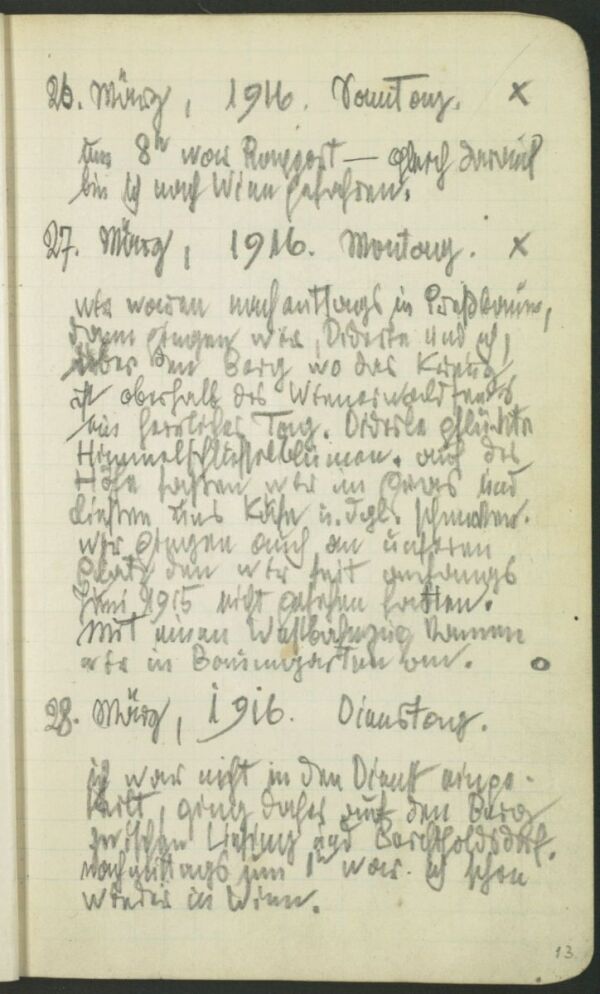 26. März, 1916. Sonntag. x
Um 8h war Rapport — gleich darauf
bin ich nach Wien gefahren.
27. März, 1916. Montag. x
wir waren nachmittags in Preßbaum,
dann gingen wir, Diderle und ich,
über den Berg wo das Kreuz
ist oberhalb des
ein herrlicher Tag. Diderle pflückte
Himmelschlüsselblumen. auf der
Höhe saßen wir im Gras und
ließen uns Käse u. dgl. schmecken.
wir gingen auch an unseren
Platz den wir seit anfangs
Juni 1915 nicht gesehen hatten.
Mit einen Westbahnzug kamen
wir in Baumgarten an. o
28. März, 1916. Dienstag.
ich war nicht in den Dienst einge-
teilt, ging daher auf den Berg
zwischen Liesing und Berchtholdsdorf.
nachmittags um 1h war ich schon
wieder in Wien.
13